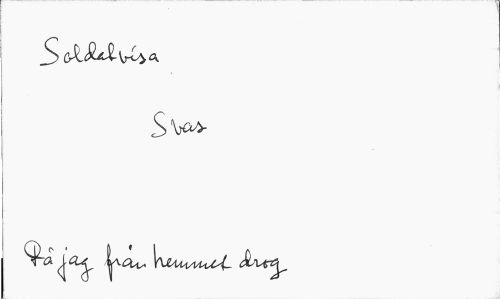 Soldatvisa
Svas
Då jag från hemmet drog